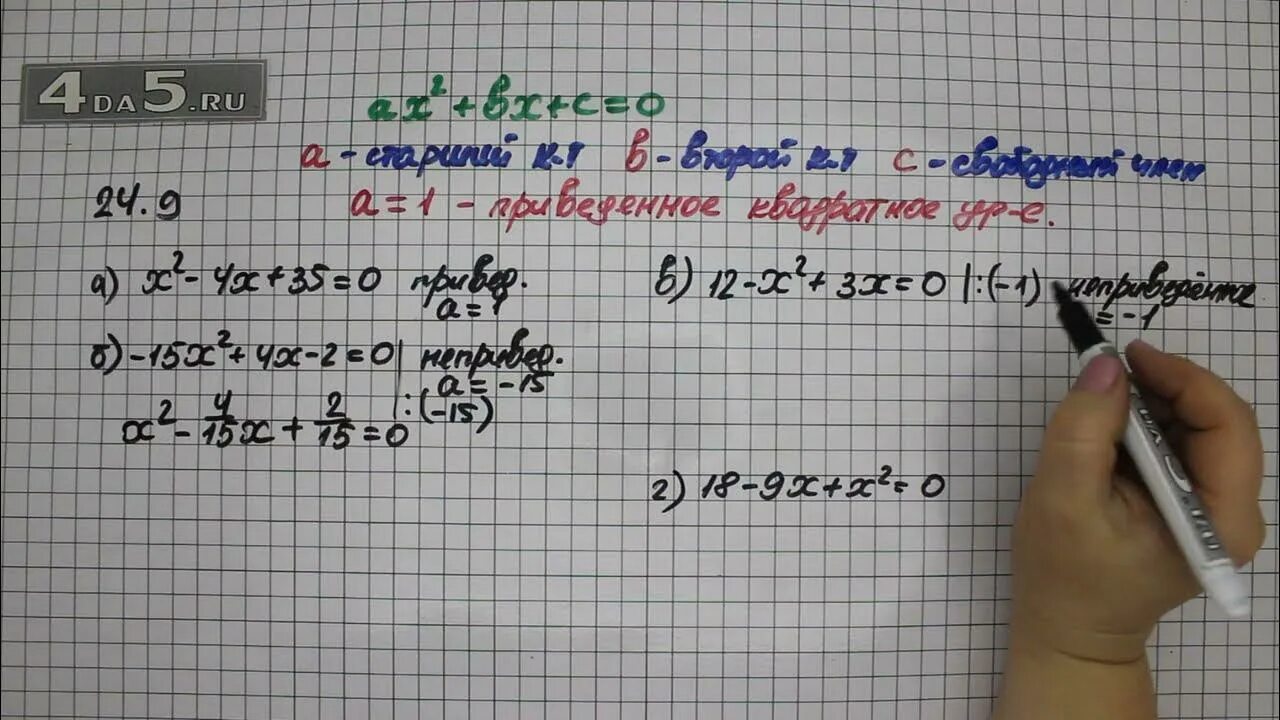 4DA5.RU
ax² + вx + c = 0
a - старший к.т в - второй к.т c - свободный член
24.9
a = 1 - приведенное квадратное ур-е.
а) x² - 4x + 35 = 0 привед.
a = 1
б) -15x² + 4x - 2 = 0 | непривед.
a = -15
x² - 4/15 x + 2/15 = 0 | :(-15)
в) 12 - x² + 3x = 0 | :(-1) неприведённое
= -1
г) 18 - 9x + x² = 0